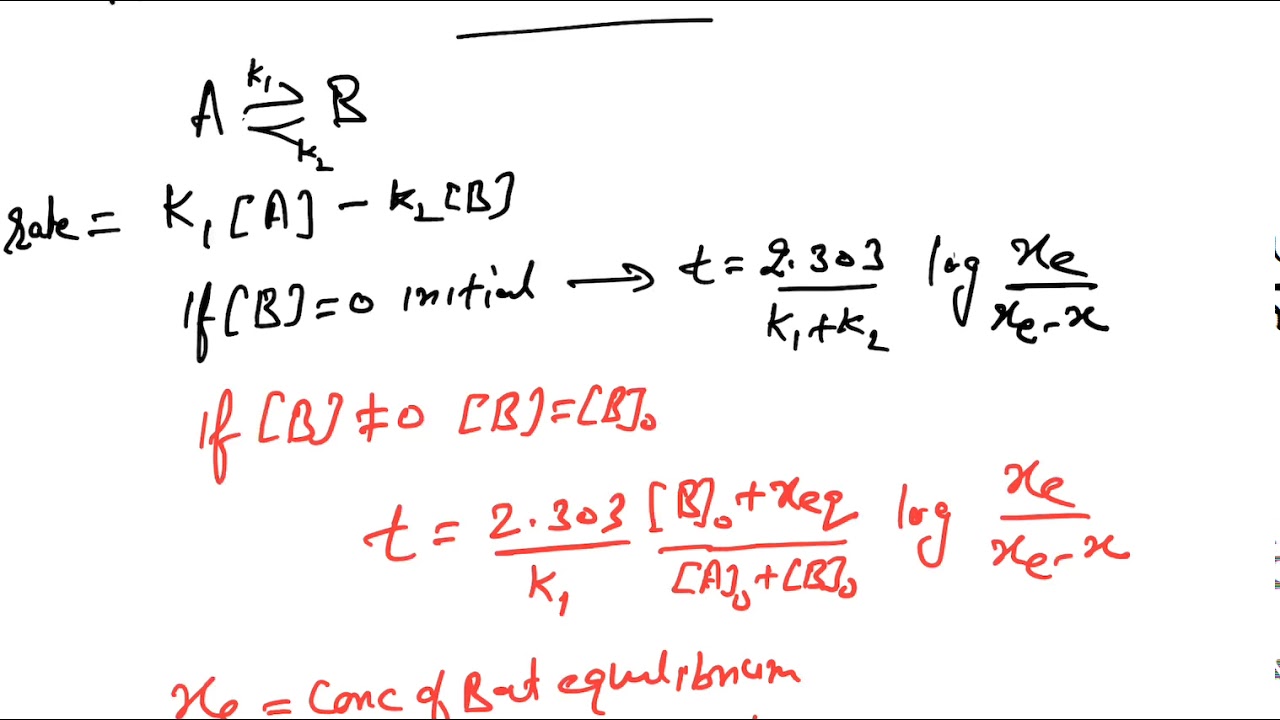 A ⇌ B
k₁
k₂
rate = K₁[A] - k₂[B]
if [B]=0 initial → t = 2.303/(k₁+k₂) log xe/(xe-x)
if [B]≠0 [B]=[B]₀
t = 2.303/k₁ ([B]₀+xeq)/([A]₀+[B]₀) log xe/(xe-x)
xe = Conc of B at equilibrium